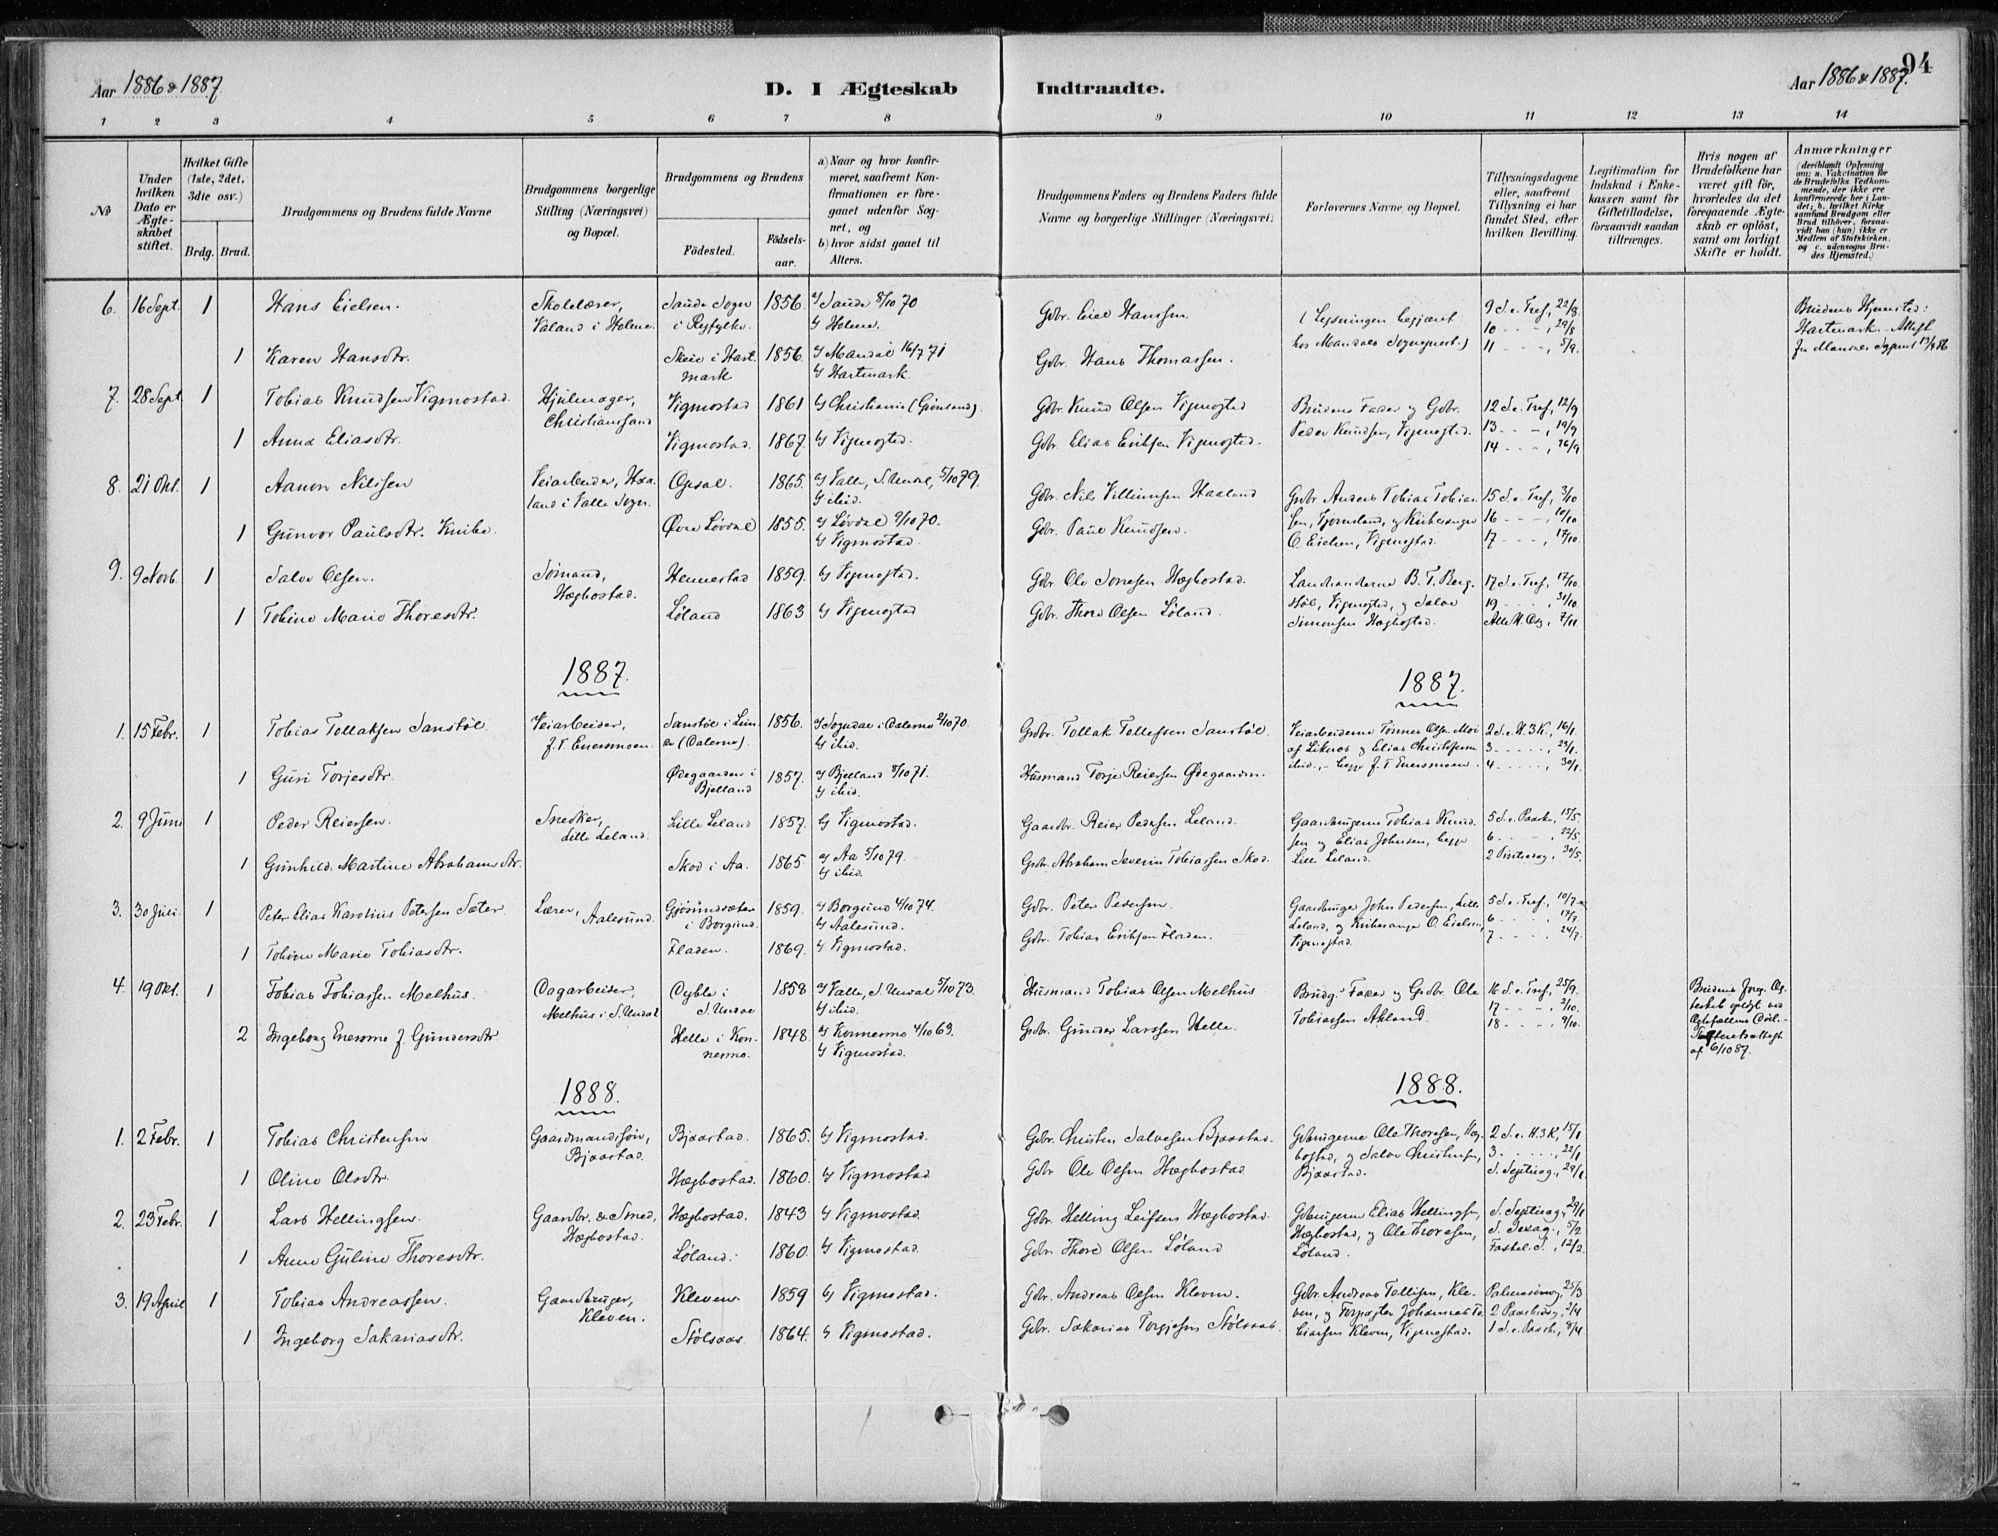 Aar 1886 & 1887. D. I Ægteskab Indtraadte. Aar 1886 & 1887. 94
1 2 3 4 5 6 7 8 9 10 11 12 13 14
No
Under hvilken Dato er Ægteskabet stiftet.
Hvilket Gifte (1ste, 2det, 3die osv.)
Brdg. Brud.
Brudgommens og Brudens fulde Navne
Brudgommens borgerlige Stilling (Næringsvei) og Bopæl.
Brudgommens og Brudens
Fødested. Fødselsaar.
a) Naar og hvor konfirmeret, saafremt Konfirmationen er foregaaet udenfor Sognet, og
b) hvor sidst gaaet til Alters.
Brudgommens Faders og Brudens Faders fulde Navne og borgerlige Stillinger (Næringsvei)
Forlovernes Navne og Bopæl.
Tillysningsdagene eller, saafremt Tillysning ei har fundet Sted, efter hvilken Bevilling.
Legitimation for Indskud i Enkekassen samt for Giftetilladelse, forsaavidt saadan tiltrænges.
Hvis nogen af Brudefolkene har været gift før, hvorledes da det foregaaende Ægteskab er opløst, samt om lovligt Skifte er holdt.
Anmærkninger (deriblandt Oplysning om: a. Vakcination for de Brudefolks Vedkommende, der ikke ere konfirmerede her i Landet; b. hvilket Kirkesamfund Brudgom eller Brud tilhører, forsaavidt han (hun) ikke er Medlem af Statskirken, og c. udensogns Brudes Hjemsted.)
6. 16 Sept. 1 Hans Eielsen. Skolelærer, Valand i Holme. Saude Sogn i Ryfylke. 1856. Saude 8/10 70 Holme. Gdbr. Eiel Hanssen. (Lysningen begjæret hos Mandals Sognepræst.) 9 S. e. Tref., 22/8. 10 - - -, 29/8 11 - - -, 5/9. Brudens Hjemsted: Hartmark.
1 Karen Hansdtr. Skeie i Hartmark 1856. Mandal 16/7 71 Hartmark. Gdbr. Hans Thomassen.
7. 28 Sept 1 Tobias Knudsen Vigmostad. Hjulmager, Christianssand Vigmostad 1861 Christiania (Grønland). Gdbr. Knud Olsen Vigmostad Brudens Fader og Gdbr. Peder Knudsen, Vigmostad. 12 S. e. Tref., 12/9 13 - - -, 19/9 14 - - -, 26/9
1 Anna Eliasdtr. Vigmostad. 1867. Vigmostad. Gdbr. Elias Eriksen Vigmostad.
8. 21 Okt. 1 Aanon Nilsen Veiarbeider, Haaland i Valle Sogn. Opsal. 1865. Valle, S. Undal, 5/10 79. ibid. Gdbr. Nils Villumsen Haaland Gdbr. Anders Tobias Tobiassen, Fjomeland, og Kirkesanger O. Eielsen, Vigmostad. 15 S. e. Tref., 3/10 16 - - -, 10/10 17 - - -, 17/10.
1 Gunvor Paulsdtr. Knibe. Øvre Løvdal 1855. Løvdal 9/10 70. Vigmostad. Gdbr. Paul Knudsen.
9. 9 Novb. 1 Salve Olsen. Sømand, Hægbostad. Hennestad 1859. Vigmostad. Gdbr. Ole Hægbostad. Landhandlerne B. T. Bergstøl, Vigmostad, og Salve Simonsen Hægbostad. 17 S. e. Tref., 17/10. 19 - - -, 31/10. Alle H. Dag, 7/11.
1 Tobine Marie Thoresdtr. Løland 1863 Vigmostad Gdbr. Thore Olsen Løland.
1887. 1887.
1. 15 Febr. 1 Tobias Tollaksen Sanstøl Veiarbeider, f. T. Enersmoen. Sanstøl i Lunde (Dalerne). 1856. Sogndal i Dalerne 2/10 70. ibid. Gdbr. Tollak Tollefsen Sanstøl Veiarbeiderne Tønnes Olsen Moi af Liknes og Elias Christensen ibid., - begge f. T. Enersmoen. 2 S. e. H. 3 K., 16/1. 3 - - -, 23/1. 4 - - -, 30/1.
1 Guri Torjesdtr. Ødegaarden i Bjelland 1857. Bjelland 8/10 71. ibid. Husmand Torje Reiersen Ødegaarden.
2. 9 Juni 1 Peder Reiersen. Snedker, Lille Leland. Lille Leland 1857. Vigmostad. Gaardbr. Reier Pedersen Leland. Gaardbrugerne Tobias Knudsen og Elias Johnsen, begge Lille Leland. 5 S. e. Paaske, 15/5. 6 - - -, 22/5. 2 Pintsedag, 30/5.
1 Gunhild Martine Abrahamsdtr. Skod i Aa. 1865 Aa 5/10 79. ibid. Gdbr. Abraham Severin Tobiassen Skod.
3. 30 Juli. 1 Peter Elias Karolius Petersen Sæter. Lærer, Aalesund. Gjørundsæter i Borgund. 1859. Borgund 4/10 74. Aalesund. Gdbr. Peter Pedersen. Gaardbruger John Pedersen, Lille Leland, og Kirkesanger O. Eielsen, Vigmostad. 5 S. e. Tref., 10/7. 6 - - -, 17/7. 7 - - -, 24/7.
1 Tobine Marie Tobiasdtr. Fladen. 1869. Vigmostad. Gdbr. Tobias Eriksen Fladen.
4. 19 Okt. 1 Tobias Tobiassen Melhus. Dagarbeider, Melhus i S. Undal Dyble i S. Undal 1858 Valle, S. Undal 5/10 73. ibid. Husmand Tobias Olsen Melhus Brudg.s Fader og Gdbr. Ole Tobiassen Akland. 16 S. e. Tref., 25/9. 17 - - -, 2/10. 18 - - -, 9/10. Brudens foreg. Ægteskab opløst ved Ægtefællens Død. - Skifteretsattest af 6/10 87.
2 Ingeborg Enersmo f. Gundersdtr Helle i Konnesmo. 1848. Konnesmo 4/10 63. Vigmostad. Gdbr. Gunder Larssen Helle.
1888. 1888.
1. 2 Febr. 1 Tobias Christensen Gaardmandssøn, Bjaastad. Bjaastad. 1865. Vigmostad. Gdbr. Christen Salvesen Bjaastad. Gdbrugerne Ole Thoresen, Hægbostad, og Salve Christensen, Bjaastad. 2 S. e. H. 3 K., 15/1 3 - - -, 22/1 S. Septuag., 29/1
1 Oline Olsdtr. Hægbostad. 1860. Vigmostad. Gdbr. Ole Olsen Hægbostad
2. 23 Febr. 1 Lars Hellingsen. Gaardbr. & Smed, Hægbostad. Hægbostad. 1843 Vigmostad. Gdbr. Helling Leifsen Hægbostad. Gdbrugerne Elias Hellingsen, Hægbostad, og Ole Thoresen, Løland. S. Septuag., 29/1 S. Sexag., 5/2 Fastel. S., 12/2.
1 Anne Guline Thoresdtr. Løland. 1860. Vigmostad. Gdbr. Thore Olsen Løland
3. 19 April 1 Tobias Andreassen. Gaardbruger, Kleven. Kleven. 1859 Vigmostad. Gdbr. Andreas Olsen Kleven. Gdbr. Andreas Tollisen, Kleven, og Forpagter Johannes Tobiassen Kleven, Vigmostad. Palmesøndag, 25/3 2 Paaskedag, 2/4 1 S. e. Paaske, 8/4
1 Ingeborg Sakariasdtr. Stølsaas. 1864. Vigmostad. Gdbr. Sakarias Torjesen Stølsaas.